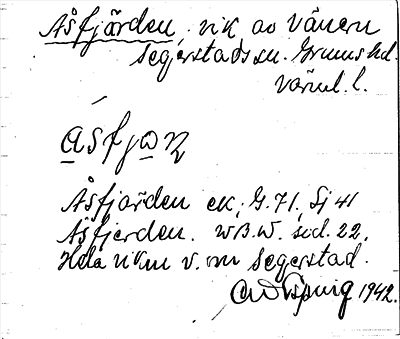 Åsfjärden, vik av Vänern
Segerstads sn. Grums hd.
Värml. l.
ásfjaɳ
Åsfjärden ek. G. 71, Sj 41
Åsfjerden. W.B.W. sid. 22.
Hela viken v. om Segerstad.
1942.